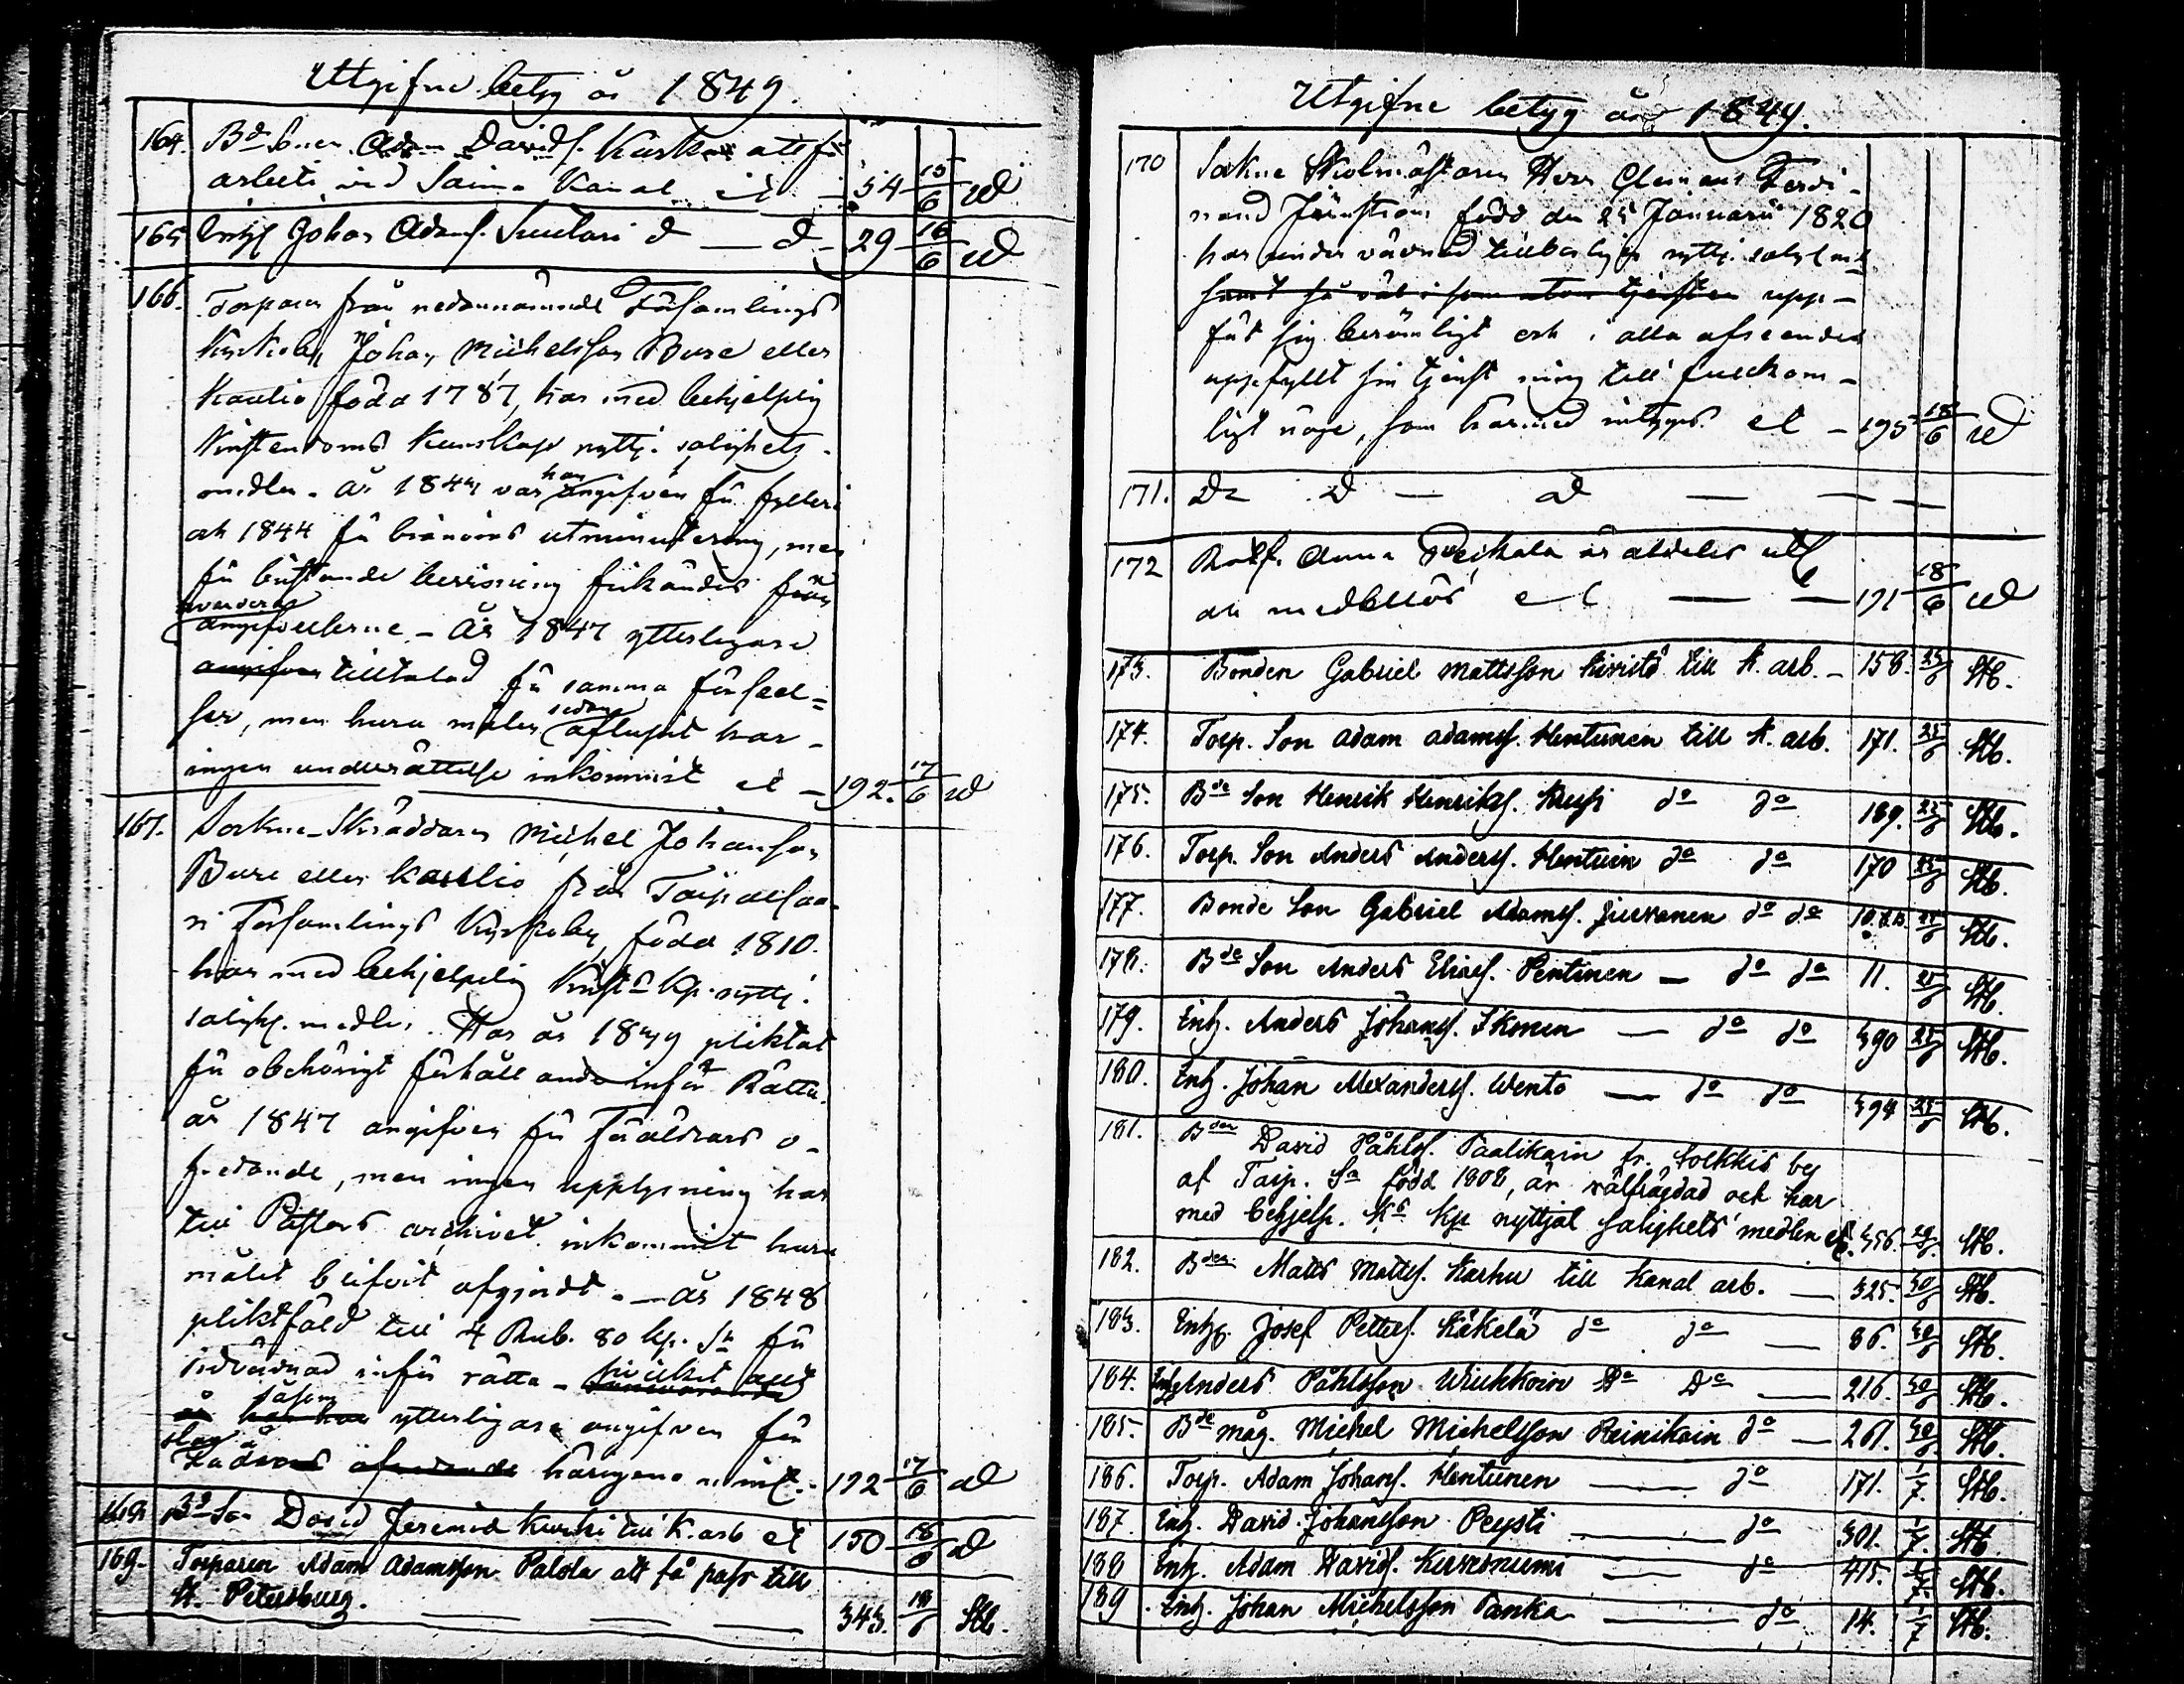 Utgifne betyg år 1849.
164. Bde Sonen Adam Davids. Kurki att få
arbeta vid Saima Kanal et — 54 15/6 ad
165 Enhg Johan Adams. Suulari d — d — 29 16/6 ad
166. Torparen från nedannämnde Församlings
Kyrkoby Johan Michelsson Bure eller
Kaulio född 1787, har med behjelplig
Christendoms Kunskap nyttj. salighets-
medlen. År 1843 var han angifven för fylleri
och 1844 för bränvins utminutering, men
för bristande bevisning frikändes från
angifvelserne. — År 1847 ytterligare
angifven tilltalad för samma förseel=
ser, men huru målen sedan aflupit har
ingen underrättelse inkommit et — 192. 17/6 ad
167. Sockne-Skräddaren Michel Johansson
Bure eller Kaulio från Taipalsaa-
ri Församlings Kyrkoby, född 1810.
har med behjelplig Christ. Kp. nyttj.
saligh. medlen. Har år 1839 pliktat
för obehörigt förhållande inför Rätta.
år 1847 angifven för Föräldrars o-
fredande, men ingen upplysning har
till Pastors archivet inkommit huru
målet blifvit afgjordt. — år 1848
pliktfäld till 4 Rub. 80 kp. Sr för
sidvördnad inför rätta —
såsom ytterligare angifven för
härigeno 192 17/6 ad
168 Bde Son David Jeremias Kurki till K. arb et 150 18/6 ad
169. Torparen Adam Adamsson Palola att få pass till
St. Petersburg. — — — 343. 18/6 Stb.
Utgifne betyg år 1849.
170 Sockne Skolmästaren Herr Clemens Ferdi-
nand Järnström född den 25 Januarii 1820
har under vördnad tillbörligen nyttj. saligh. med.
samt så väl i som utom tjensten upp-
fört sig berömligt och i alla afseenden
uppfyllt sin tjenst mig till fullkom-
ligt nöje, som härmed intygas et — 195 18/6 ad
171. D d — d — — —
172 Anna är alldeles utf.
och medellös et — — 191 18/6 ad
173. Bonden Gabriel Mattsson Kivistö till K. arb. — 158. 25/6 Stb.
174. Torp. Son Adam Adamss. Hentunen till K. arb. 171. 25/6 Stb.
175. Bde Son Henrik Henrikss. Kuusi do do 189. 25/6 Stb.
176. Torp. Son Anders Anderss. Hentuin do do 170 25/6 Stb.
177. Bonde Son Gabriel Adamss. Jurvanen do do 25/6 Stb.
178. Bde Son Anders Eliass. Pentinen — do do 11. 25/6 Stb.
179. Enh. Anders Johanss. Ikonen — do do 390 25/6 Stb.
180. Enh. Johan Alexanderss. Wento — do do 394 25/6 Stb.
181. Bden David Påhlss. Paalikain fr. Solkkis by
af Taip. Sn född 1808, är välfrägdad och har
med behjelp. Kns Kp nyttjat salighets medlen et. 356. 29/6. Stb.
182. Bden Matts Mattss. Karhu till Kanal arb. — 325. 30/6 Stb.
183. Enhg. Josef Petterss. Käkelä do do — 86. 30/6 Stb.
184. Enhg Anders Påhlsson Wiukkoin Do Do — 216. 30/6 Stb.
185. Bde måg. Michel Michelsson Reinikain do — 261. 30/6. Stb.
186. Torp. Adam Johanss. Hentunen — do 171. 1/7. Stb.
187. Enh. David Johansson Peysti — do 301. 1/7. Stb.
188 Enh. Adam Davids. Kurvesniemi — do 415. 1/7. Stb.
189. Enh. Johan Michelsson Panka — do 14. 1/7 Stb.